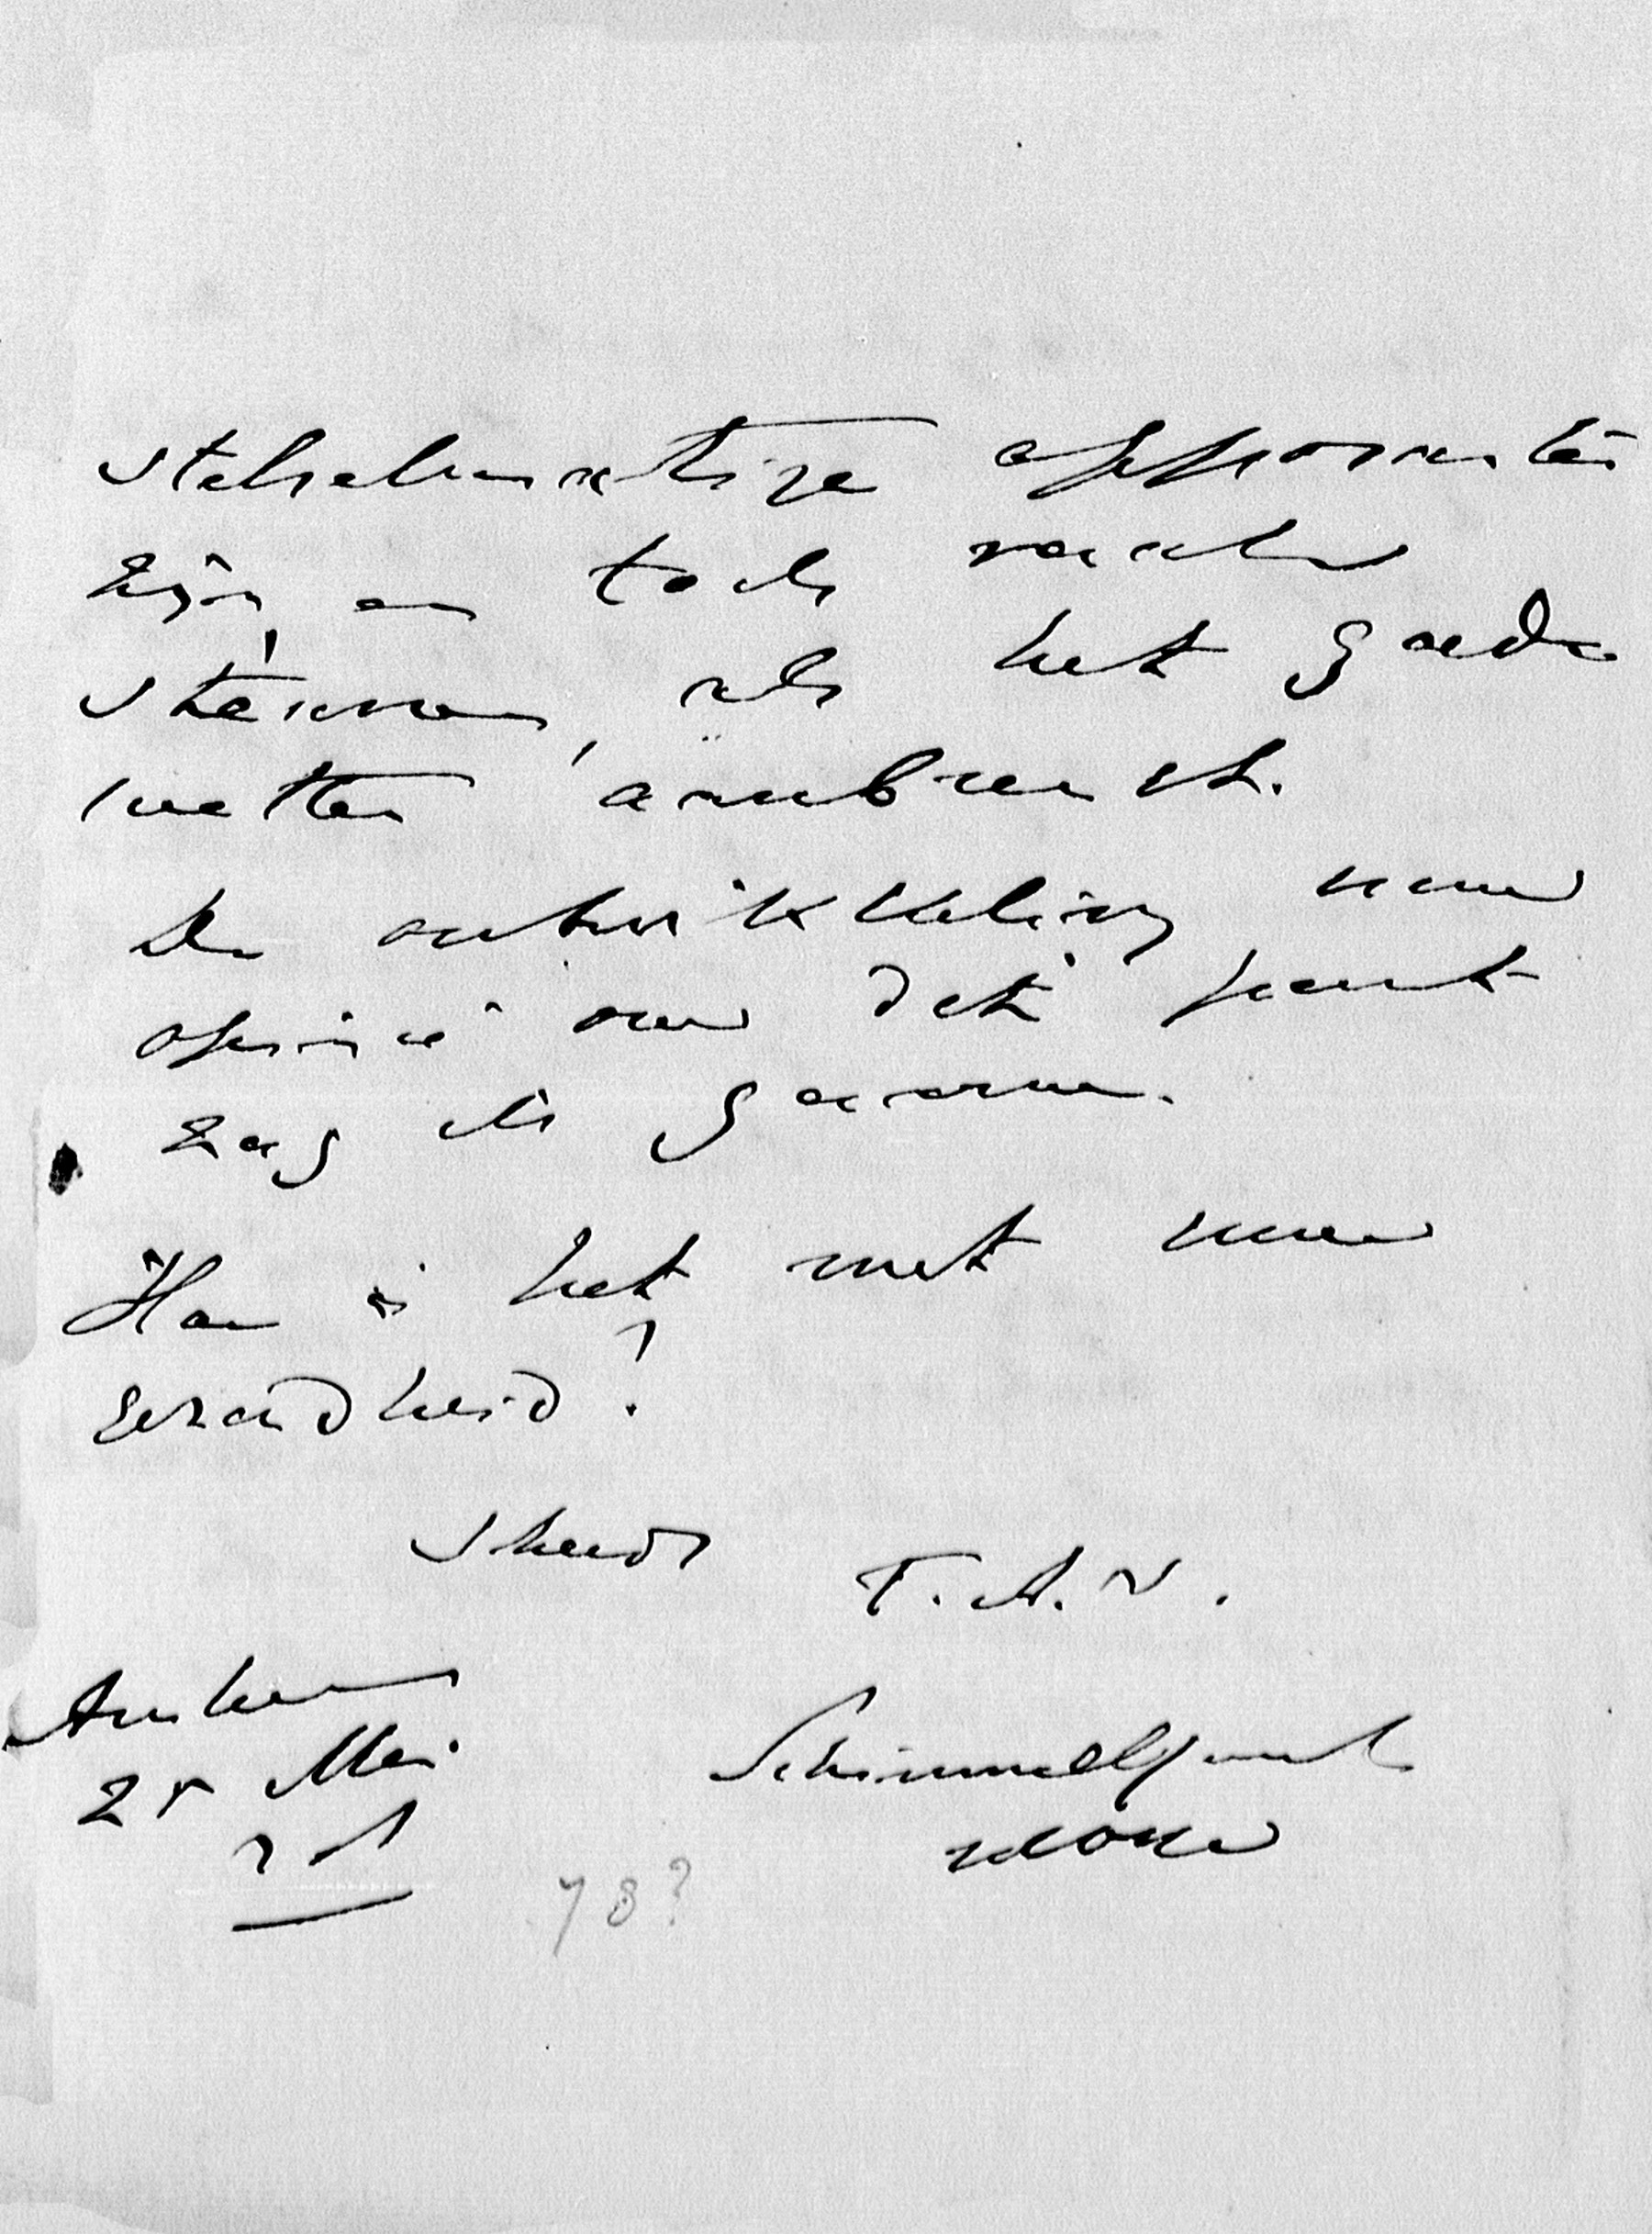 stelselmatige opposanten
zijn, en toch reeds
steunen, als het goede
wetten aanbrengt.
De ontwikkeling uwer
opinie over dit punt
zag ik gaarne.
Hoe is het met uwe
gezondheid?
Steeds T. A. V.
Arnhem
25 Mei
Schimmelpenn
78?